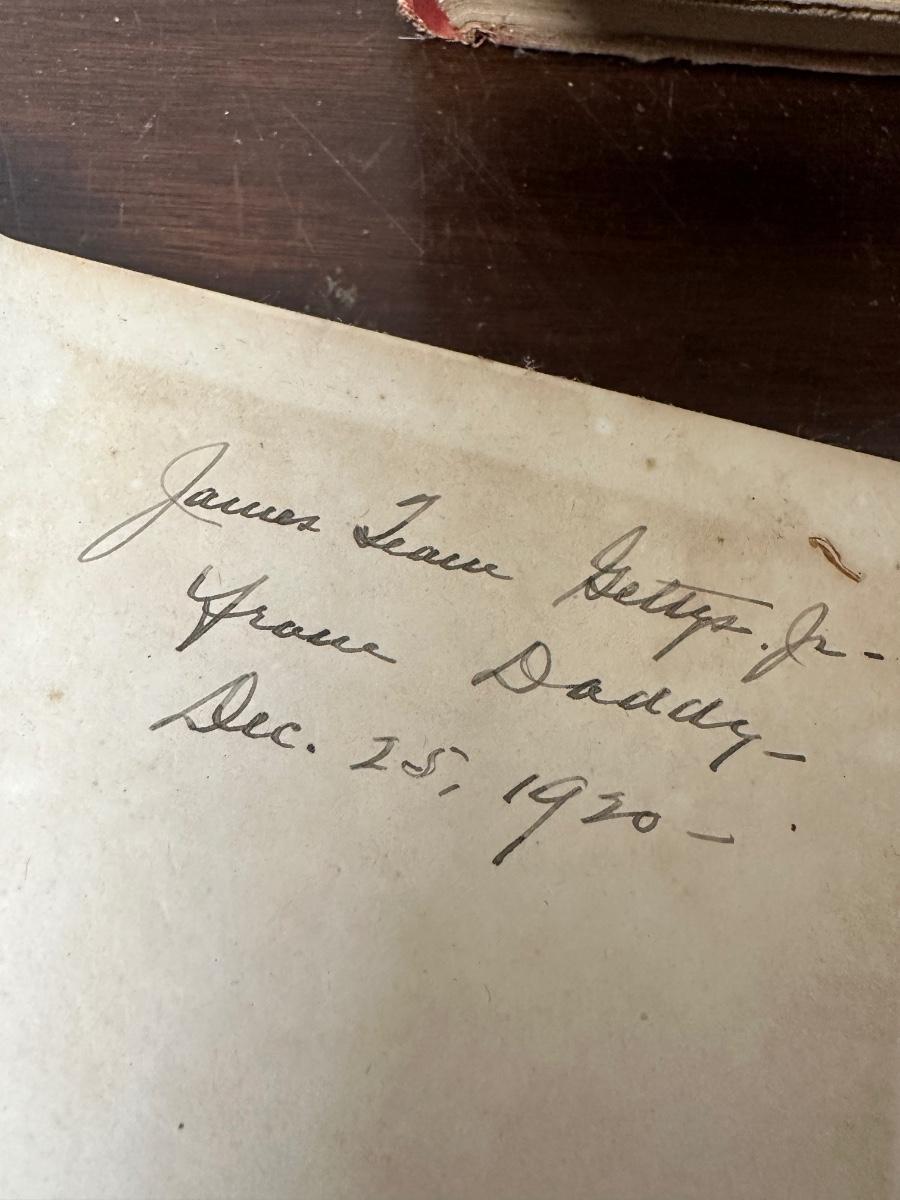 James Team Gettys. Jr-
From Daddy-
Dec. 25, 1920-